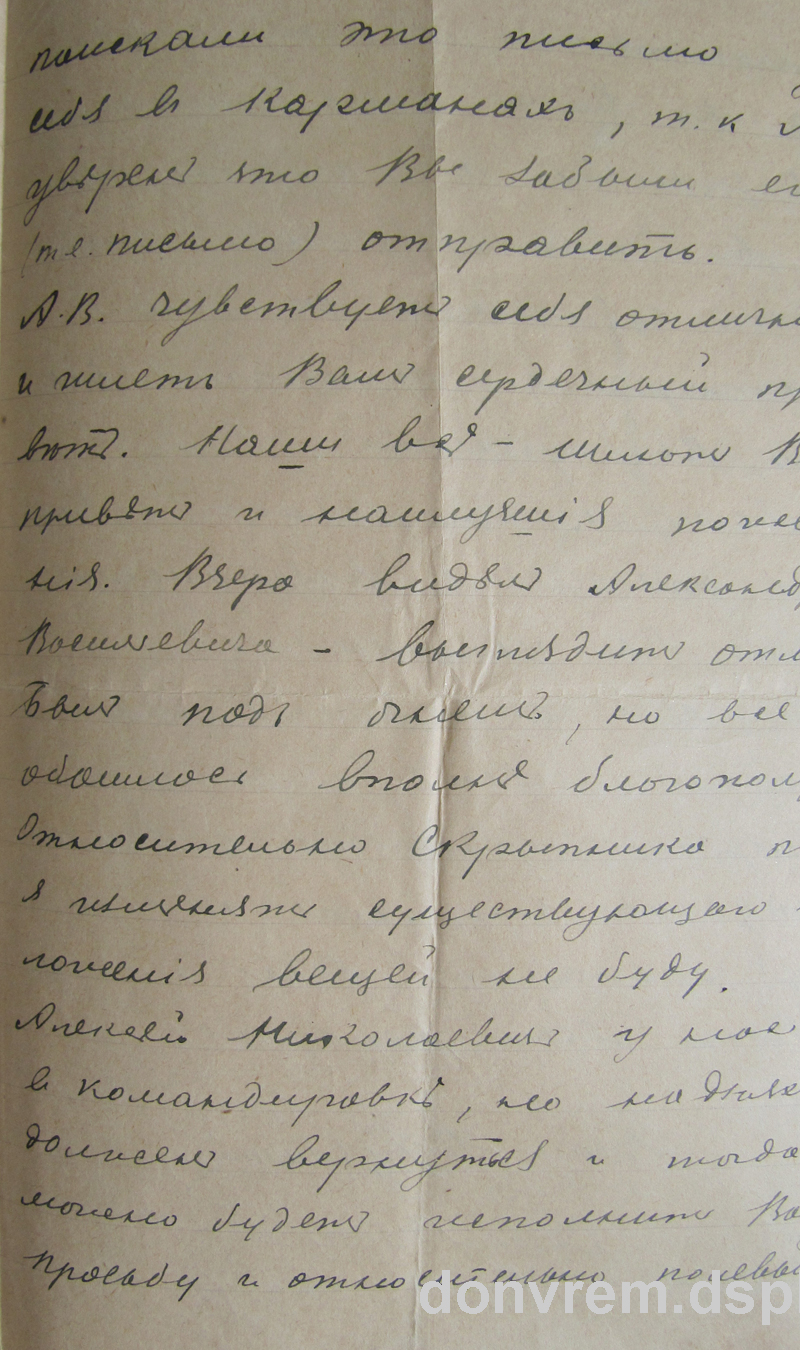 поискали это письмо
себя въ карманахъ, т. к
увѣренъ что Вы забыли ег
(т.е. письмо) отправить.
А.В. чувствуетъ себя отлично
и шлетъ Вамъ сердечный пр
вѣтъ. Наши всѣ - шлютъ В
привѣтъ и наилучшія поже
нія. Вчера видѣлъ Александ
Васильевича - выглядитъ отл
Былъ подъ огнемъ, но все
обошлось вполнѣ благопол
Относительно Скрыпника
я измѣнять существующаго
ложенія вещей не буду.
Алексѣй Николаевичъ у нас
въ командировкѣ, но на дняхъ
долженъ вернуться и тогда
можно будетъ исполнить Ва
просьбу и относительно полевы
donvrem.dsp